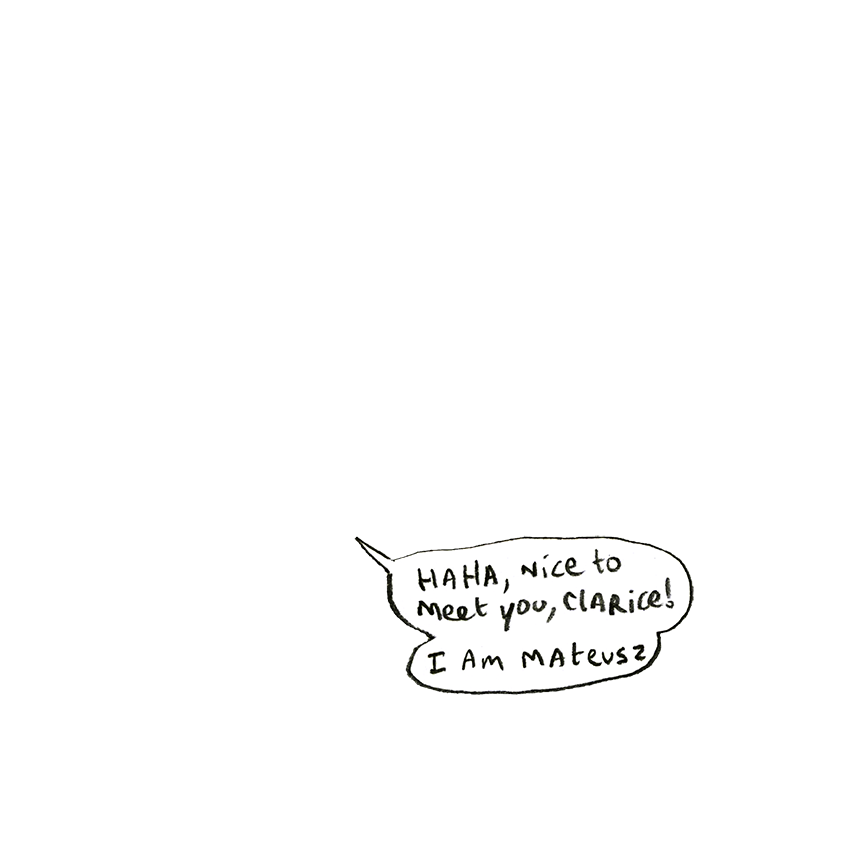 HAHA, Nice to
Meet you, ClARice!
I Am MAteusz